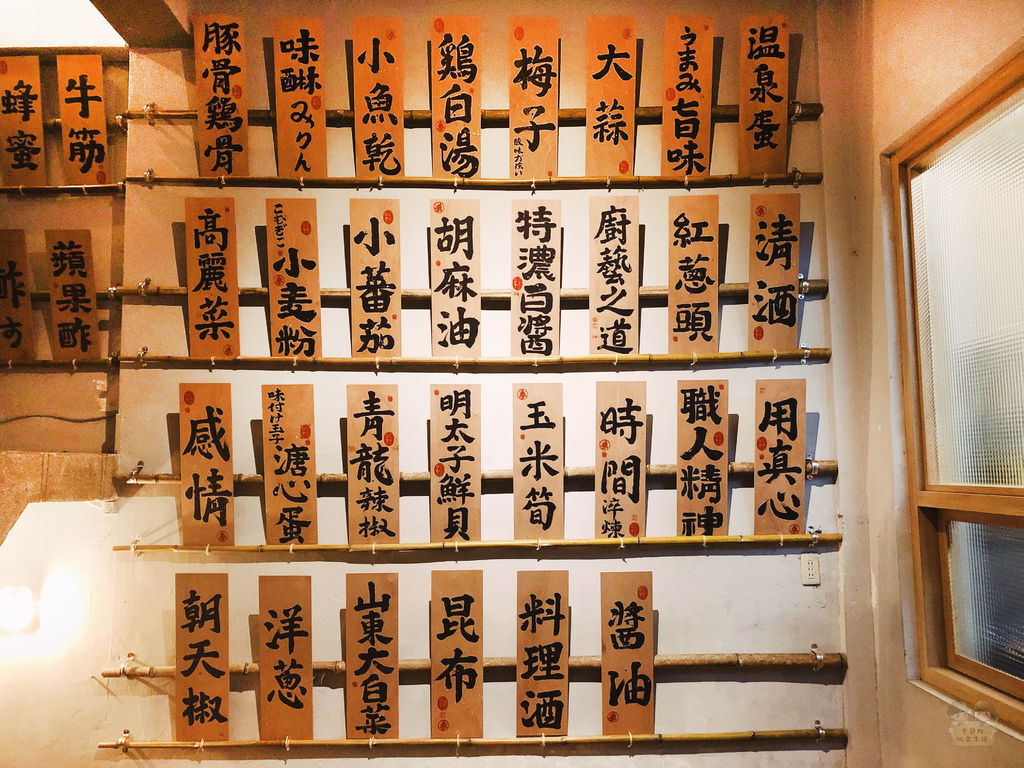 温泉蛋
うまみ旨味
大蒜
梅子
鶏白湯
小魚乾
味醂みりん
豚骨鶏骨
牛筋
蜂蜜
清酒
紅蔥頭
廚藝之道
特濃白醬
胡麻油
小蕃茄
こむぎこ小麦粉
高麗菜
蘋果酢
用真心
職人精神
時間淬煉
玉米筍
明太子鮮貝
青龍辣椒
味付け玉子溏心蛋
感情
醬油
料理酒
昆布
山東大白菜
洋蔥
朝天椒